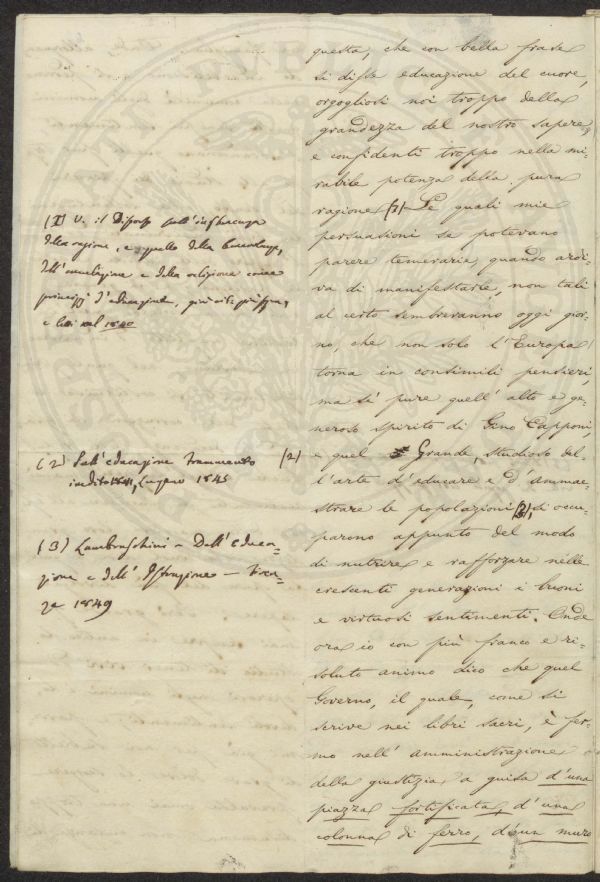 questa, che con bella frase
si disse educazione del cuore,
orgogliosi noi troppo della
grandezza del nostro sapere,
e confidenti troppo nella mi-
rabile potenza della pura
ragione (1). Le quali mie
persuasioni se potevano
parere temerarie, quando ardi-
va di manifestarle, non tali
al certo sembreranno oggi gior-
no, che non solo l'Europa
torna in consimili pensieri,
ma sì pure quell'alto e ge-
neroso spirito di Gino Capponi,
(2) e quel Grande, studioso del-
l'arte d'educare e d'ammae-
strare le popolazioni (3), si occu-
parono appunto del modo
di nutrire e rafforzare nelle
crescenti generazioni i buoni
e virtuosi sentimenti. Onde
ora io con più franco e ri-
soluto animo dico che quel
Governo, il quale, come si
scrive nei libri sacri, è fer-
mo nell'amministrazione
della giustizia a guisa d'una
piazza fortificata, d'una
colonna di ferro, d'un muro
(1) V. il Discorso sull'influenza
della ragione, e quello della
dell' e della religione come
principj d'educazione,
e letti nel 1840
(2) Sull'educazione Frammento
inedito 1841, Lugano 1845
(3) Lambruschini - Dell'Educa-
zione e dell'Istruzione - Firen-
ze 1849